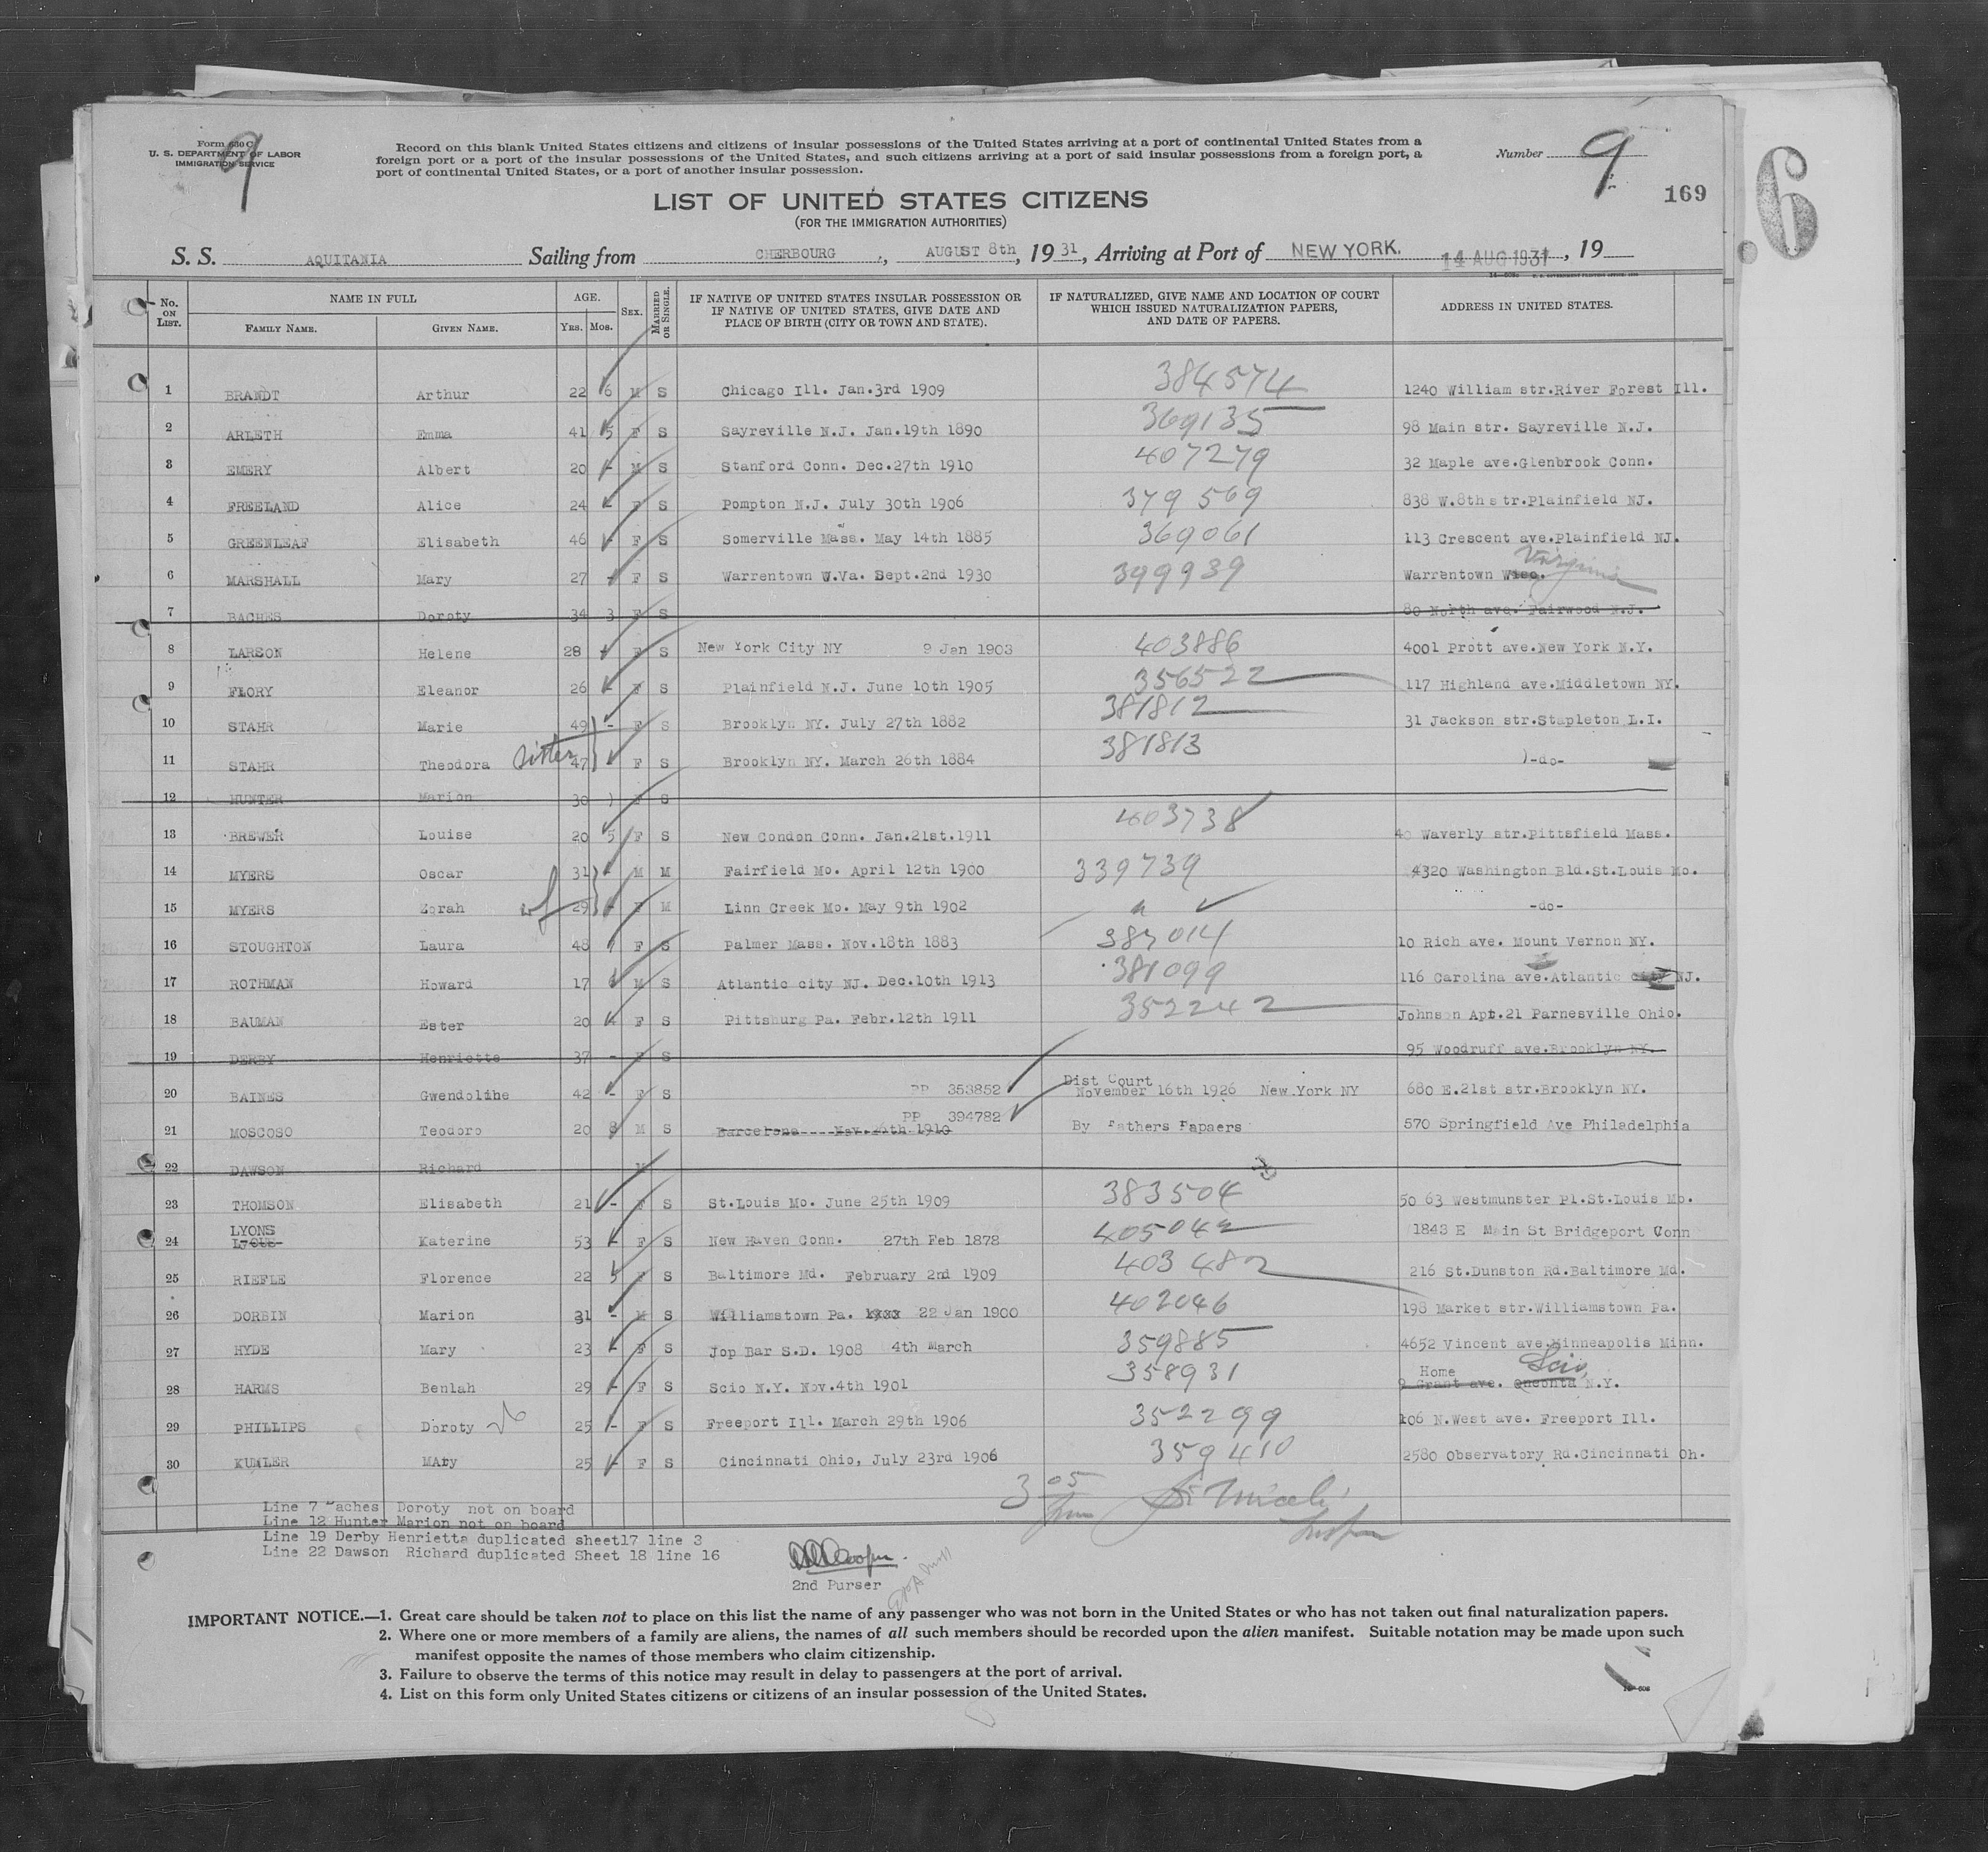 Form 630 C
U. S. DEPARTMENT OF LABOR
IMMIGRATION SERVICE
9
Record on this blank United States citizens and citizens of insular possessions of the United States arriving at a port of continental United States from a
foreign port or a port of the insular possessions of the United States, and such citizens arriving at a port of said insular possessions from a foreign port, a
port of continental United States, or a port of another insular possession.
Number 9
169
6
LIST OF UNITED STATES CITIZENS
(FOR THE IMMIGRATION AUTHORITIES)
S. S. AQUITANIA Sailing from CHERBOURG , AUGUST 8th, 19 31, Arriving at Port of NEW YORK. 14 AUG 1931, 19
No. ON LIST. NAME IN FULL FAMILY NAME. GIVEN NAME. AGE. Yrs. Mos. SEX. MARRIED OR SINGLE. IF NATIVE OF UNITED STATES INSULAR POSSESSION OR IF NATIVE OF UNITED STATES, GIVE DATE AND PLACE OF BIRTH (CITY OR TOWN AND STATE). IF NATURALIZED, GIVE NAME AND LOCATION OF COURT WHICH ISSUED NATURALIZATION PAPERS, AND DATE OF PAPERS. ADDRESS IN UNITED STATES.
1 BRANDT Arthur 22 6 M S Chicago Ill. Jan.3rd 1909 384574 1240 William str.River Forest Ill.
2 ARLETH Emma 41 5 F S Sayreville N.J. Jan.19th 1890 369135 98 Main str. Sayreville N.J.
3 EMERY Albert 20 - M S Stanford Conn. Dec.27th 1910 407279 32 Maple ave.Glenbrook Conn.
4 FREELAND Alice 24 - F S Pompton N.J. July 30th 1906 379569 838 W.8th str.Plainfield NJ.
5 GREENLEAF Elisabeth 46 - F S Somerville Mass. May 14th 1885 369061 113 Crescent ave.Plainfield NJ.
6 MARSHALL Mary 27 - F S Warrentown W.Va. Sept.2nd 1930 399939 Warrentown Wisc. Virginia
7 BACHES Doroty 34 3 F S 80 North ave. Fairwood N.J.
8 LARSON Helene 28 - F S New York City NY 9 Jan 1903 403886 4001 Prott ave.New York N.Y.
9 FLORY Eleanor 26 - F S Plainfield N.J. June 10th 1905 356522 117 Highland ave.Middletown NY.
10 STAHR Marie 49 - F S Brooklyn NY. July 27th 1882 381812 31 Jackson str.Stapleton L.I.
11 STAHR Theodora sister 47 - F S Brooklyn NY. March 26th 1884 381813 )-do-
12 HUNTER Marion 30 ) F S
13 BREWER Louise 20 5 F S New Condon Conn. Jan.21st.1911 403738 40 Waverly str.Pittsfield Mass.
14 MYERS Oscar 31 - M M Fairfield Mo. April 12th 1900 339739 4320 Washington Bld.St.Louis Mo.
15 MYERS Zorah wf 29 - F M Linn Creek Mo. May 9th 1902 " -do-
16 STOUGHTON Laura 48 F S Palmer Mass. Nov.18th 1883 387014 10 Rich ave. Mount Vernon NY.
17 ROTHMAN Howard 17 M S Atlantic city NJ. Dec.10th 1913 381099 116 Carolina ave.Atlantic city NJ.
18 BAUMAN Ester 20 F S Pittsburg Pa. Febr.12th 1911 352242 Johnson Apt.21 Parnesville Ohio.
19 DERBY Henriette 37 - F S 95 Woodruff ave.Brooklyn NY.
20 BAINES Gwendolihe 42 - F S PP 353852 Dist Court November 16th 1926 New York NY 680 E.21st str.Brooklyn NY.
21 MOSCOSO Teodoro 20 8 M S Barcelona----Nov.26th 1910 PP 394782 By Fathers Papaers 570 Springfield Ave Philadelphia
22 DAWSON Richard M
23 THOMSON Elisabeth 21 - F S St.Louis Mo. June 25th 1909 383504 50 63 Westmunster Pl.St.Louis Mo.
24 LYONS Lyous Katerine 53 - F S New Haven Conn. 27th Feb 1878 405042 1843 E Main St Bridgeport Conn
25 RIEFLE Florence 22 5 F S Baltimore Md. February 2nd 1909 403482 216 St.Dunston Rd.Baltimore Md.
26 DORBIN Marion 31 - M S Williamstown Pa. 22 Jan 1900 402046 198 Market str.Williamstown Pa.
27 HYDE Mary 23 - F S Jop Bar S.D. 1908 4th March 359885 4652 Vincent ave.Minneapolis Minn.
28 HARMS Benlah 29 - F S Scio N.Y. Nov.4th 1901 358931 Home Scio, 9 Grant ave. Oneonta N.Y.
29 PHILLIPS Doroty 25 - F S Freeport Ill. March 29th 1906 352299 106 N.West ave. Freeport Ill.
30 KUMLER MAry 25 - F S Cincinnati Ohio, July 23rd 1906 359410 2580 Observatory Rd.Cincinnati Oh.
3 05
Line 7 Baches Doroty not on board
Line 12 Hunter Marion not on board
Line 19 Derby Henrietta duplicated sheet17 line 3
Line 22 Dawson Richard duplicated Sheet 18 line 16
2nd Purser
IMPORTANT NOTICE.—1. Great care should be taken not to place on this list the name of any passenger who was not born in the United States or who has not taken out final naturalization papers.
2. Where one or more members of a family are aliens, the names of all such members should be recorded upon the alien manifest. Suitable notation may be made upon such
manifest opposite the names of those members who claim citizenship.
3. Failure to observe the terms of this notice may result in delay to passengers at the port of arrival.
4. List on this form only United States citizens or citizens of an insular possession of the United States.